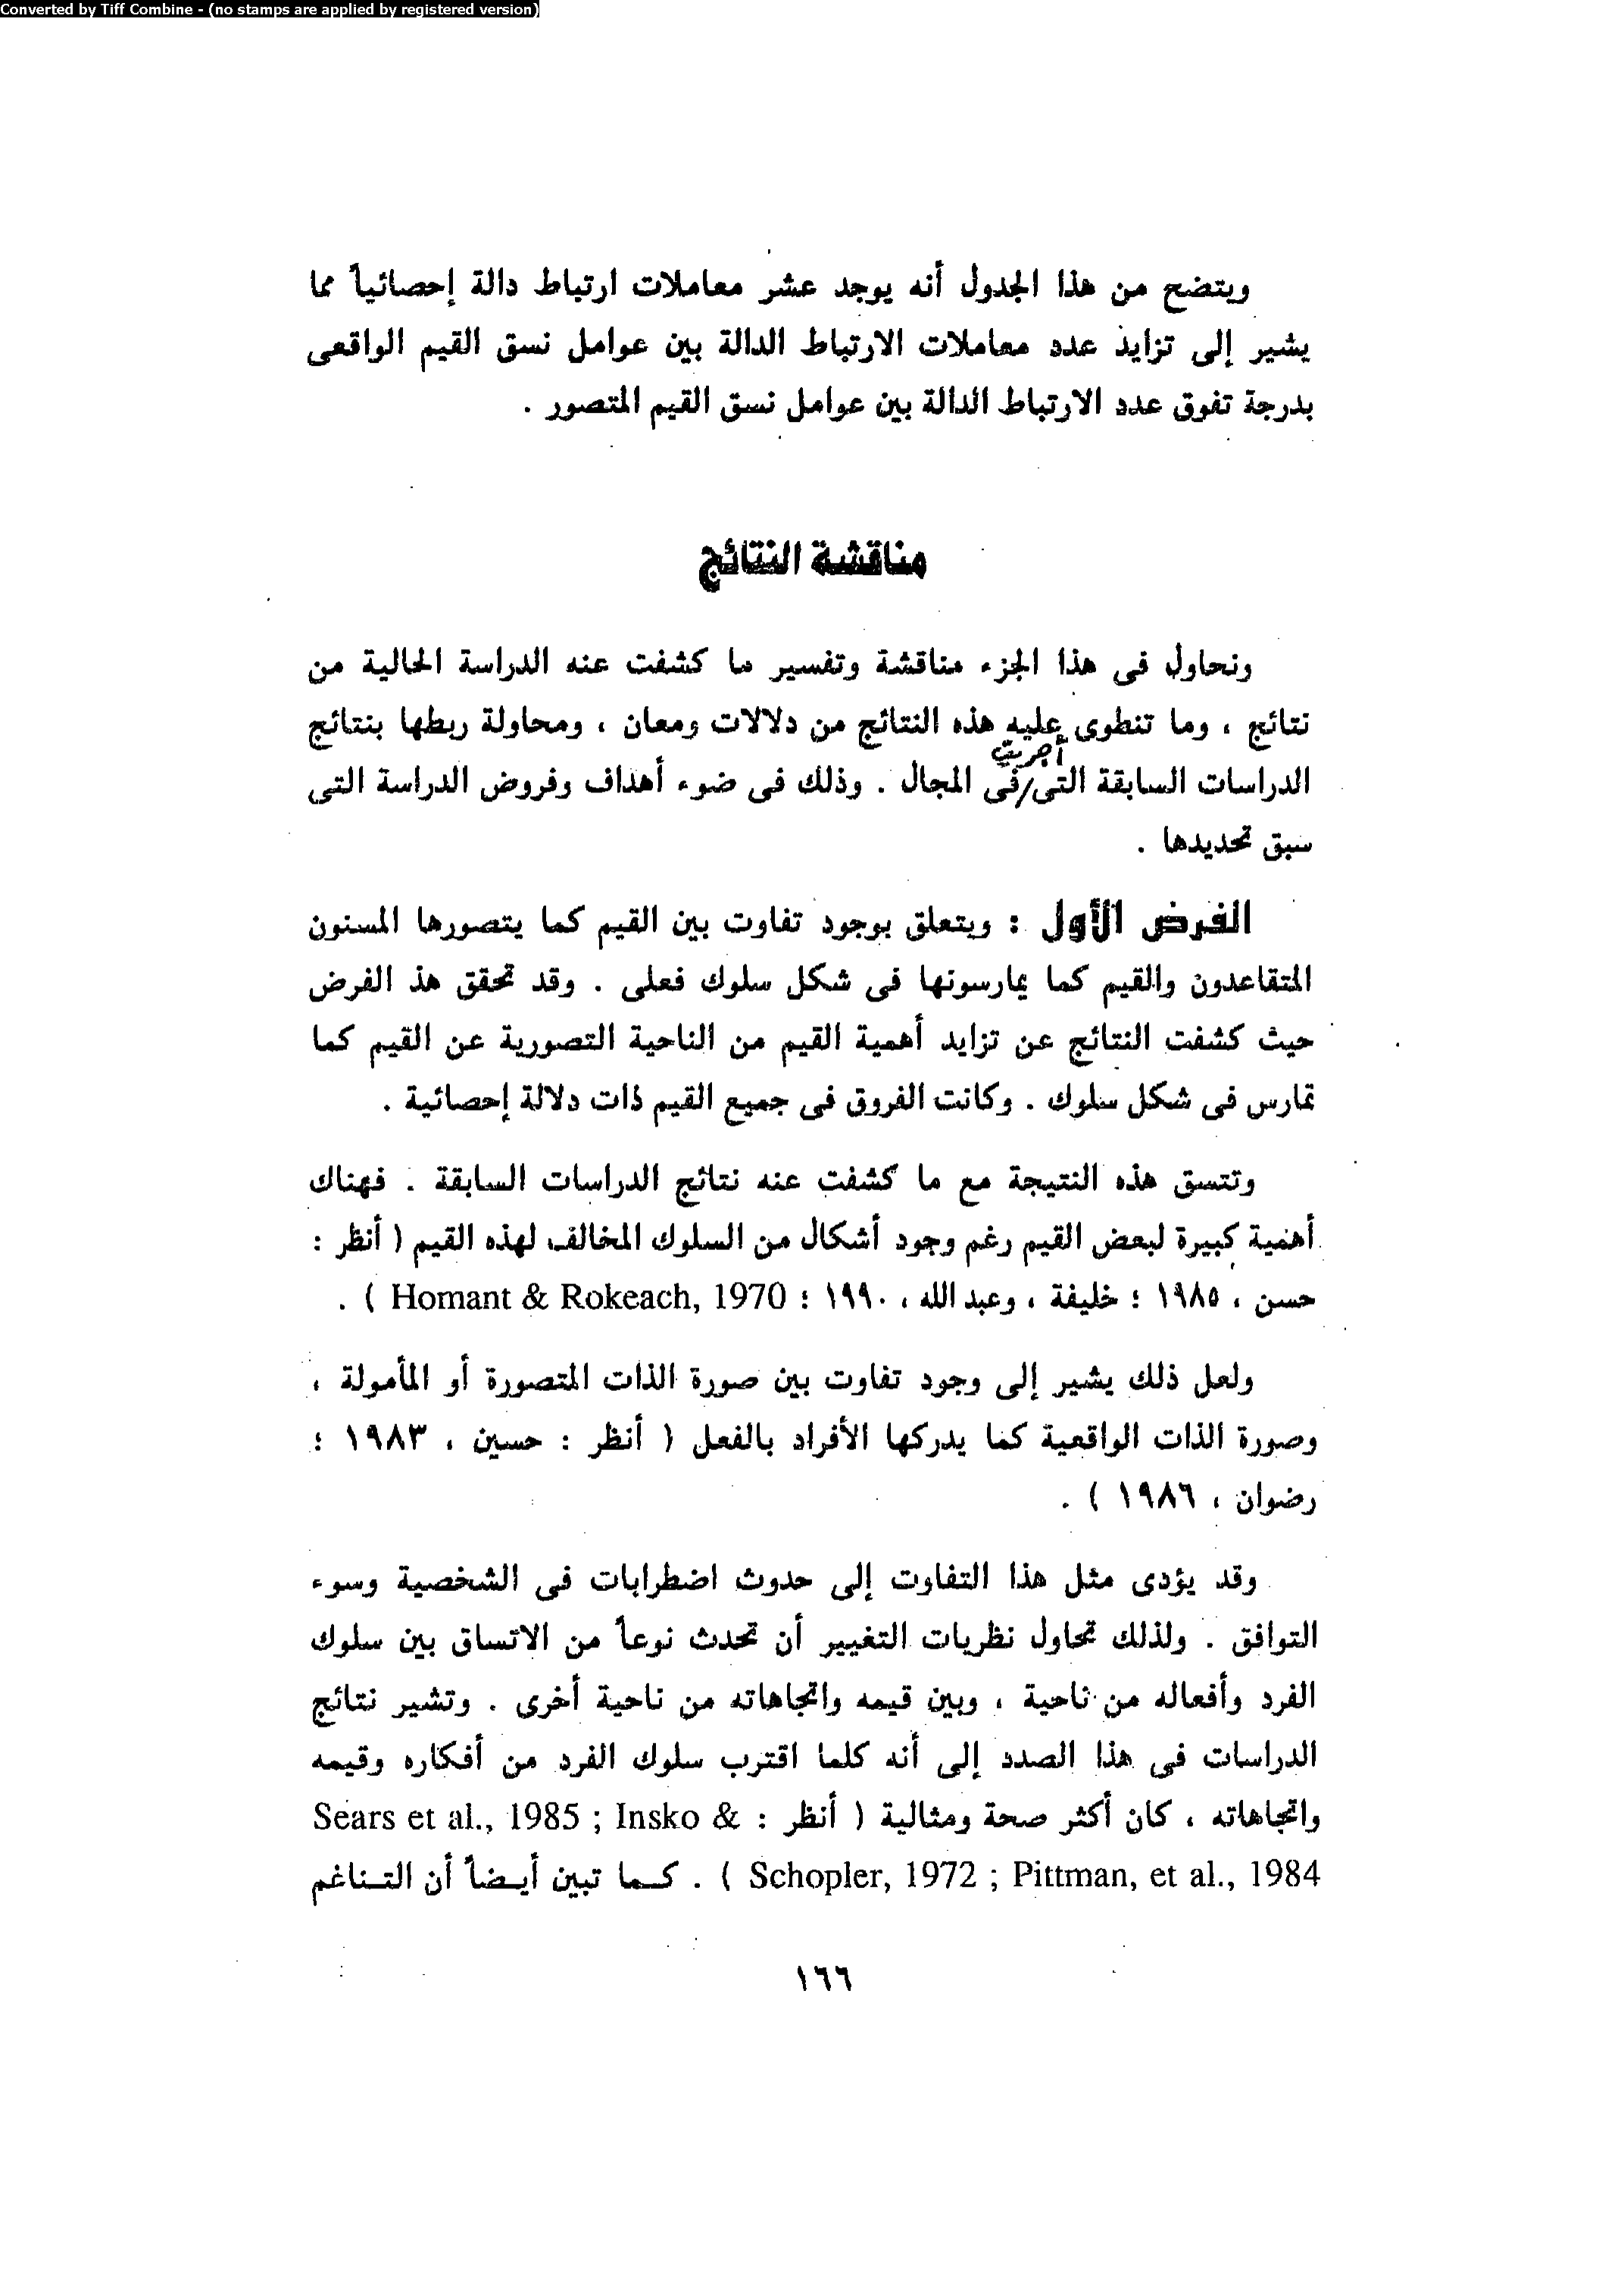 Converted by Tiff Combine - (no stamps are applied by registered version)
ويتضح من هذا الجدول أنه يوجد عشر معاملات ارتباط دالة إحصائياً مما
يشير إلى تزايد عدد معاملات الارتباط الدالة بين عوامل نسق القيم الواقعى
بدرجة تفوق عدد الارتباط الدالة بين عوامل نسق القيم المتصور .
مناقشة النتائج
ونحاول فى هذا الجزء مناقشة وتفسير ما كشفت عنه الدراسة الحالية من
نتائج ، وما تنطوى عليه هذه النتائج من دلالات ومعان ، ومحاولة ربطها بنتائج
أجريت
الدراسات السابقة التى/فى المجال . وذلك فى ضوء أهداف وفروض الدراسة التى
سبق تحديدها .
الفرض الأول : ويتعلق بوجود تفاوت بين القيم كما يتصورها المسنون
المتقاعدون والقيم كما يمارسونها فى شكل سلوك فعلى . وقد تحقق هذ الفرض
حيث كشفت النتائج عن تزايد أهمية القيم من الناحية التصورية عن القيم كما
تمارس فى شكل سلوك . وكانت الفروق فى جميع القيم ذات دلالة إحصائية .
وتتسق هذه النتيجة مع ما كشفت عنه نتائج الدراسات السابقة . فهناك
أهمية كبيرة لبعض القيم رغم وجود أشكال من السلوك المخالف لهذه القيم ( أنظر :
حسن ، ١٩٨٥ ؛ خليفة ، وعبد الله ، ١٩٩٠ ؛ Homant & Rokeach, 1970 ) .
ولعل ذلك يشير إلى وجود تفاوت بين صورة الذات المتصورة أو المأمولة ،
وصورة الذات الواقعية كما يدركها الأفراد بالفعل ( أنظر : حسين ، ١٩٨٣ ؛
رضوان ، ١٩٨٦ ) .
وقد يؤدى مثل هذا التفاوت إلى حدوث اضطرابات فى الشخصية وسوء
التوافق . ولذلك تحاول نظريات التغيير أن تحدث نوعاً من الاتساق بين سلوك
الفرد وأفعاله من ناحية ، وبين قيمه واتجاهاته من ناحية أخرى . وتشير نتائج
الدراسات فى هذا الصدد إلى أنه كلما اقترب سلوك الفرد من أفكاره وقيمه
واتجاهاته ، كان أكثر صحة ومثالية ( أنظر : Sears et al., 1985 ; Insko &
Schopler, 1972 ; Pittman, et al., 1984 ) . كـما تبين أيـضاً أن التـناغم
١٦٦